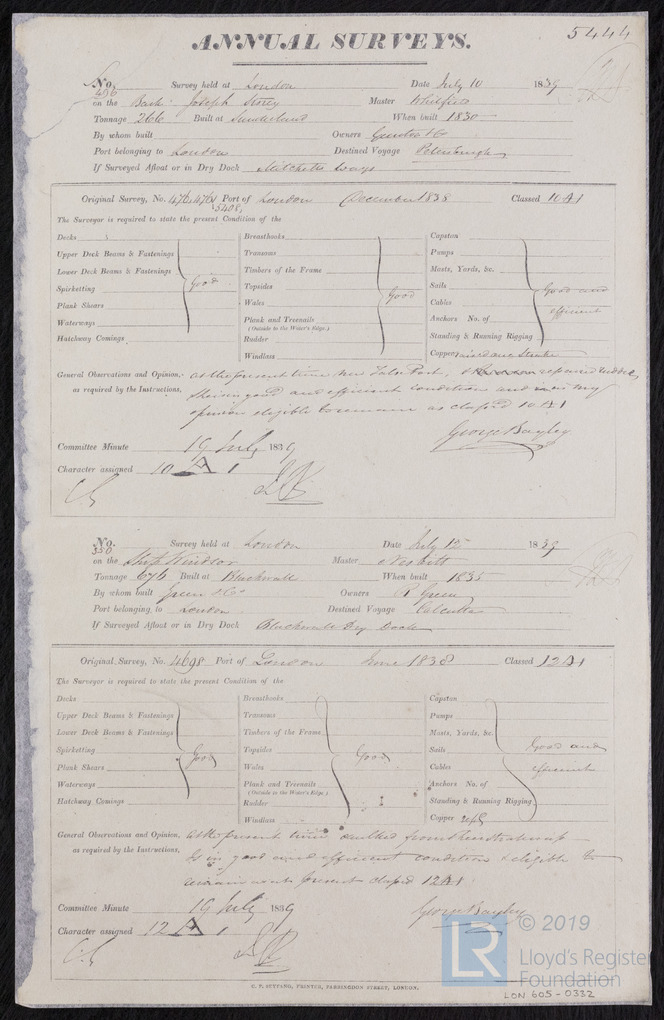 5444
ANNUAL SURVEYS.
No. 496 Survey held at London Date July 10 1839
on the Bark Joseph Storey Master Whitfield
Tonnage 266 Built at Sunderland When built 1830
By whom built Owners
Port belonging to London Destined Voyage Petersburgh
If Surveyed Afloat or in Dry Dock Mitchells ways
Original Survey, No. 476, 4761 Port of London December 1838 Classed 10 A1
5408
The Surveyor is required to state the present Condition of the
Decks
Upper Deck Beams & Fastenings
Lower Deck Beams & Fastenings
Spirketting Good
Plank Shears
Waterways
Hatchway Comings
Breasthooks
Transoms
Timbers of the Frame
Topsides
Wales Good
Plank and Treenails
(Outside to the Water's Edge.)
Rudder
Windlass
Capstan
Pumps
Masts, Yards, &c.
Sails Good and
Cables efficient
Anchors No. of
Standing & Running Rigging
Copper
General Observations and Opinion, at the present time New False Post, repaired Rudder
as required by the Instructions, She is in good and efficient condition and is in my
opinion eligible to remain as classed 10 A1
George Bayley
Committee Minute 19 July 1839
Character assigned 10 A 1
No. 350 Survey held at London Date July 12 1839
on the Ship Windsor Master Nesbitt
Tonnage 676 Built at Blackwall When built 1835
By whom built Green & Co Owners R Green
Port belonging to London Destined Voyage Calcutta
If Surveyed Afloat or in Dry Dock Blackwall Dry Dock
Original Survey, No. 4698 Port of London June 1838 Classed 12 A1
The Surveyor is required to state the present Condition of the
Decks
Upper Deck Beams & Fastenings
Lower Deck Beams & Fastenings
Spirketting Good
Plank Shears
Waterways
Hatchway Comings
Breasthooks
Transoms
Timbers of the Frame
Topsides
Wales Good
Plank and Treenails
(Outside to the Water's Edge.)
Rudder
Windlass
Capstan
Pumps
Masts, Yards, &c.
Sails Good and
Cables efficient
Anchors No. of
Standing & Running Rigging
Copper
General Observations and Opinion, at the present time caulked from
as required by the Instructions, Is in good and efficient condition & eligible to
remain as at present classed 12 A1
Committee Minute 19 July 1839 George Bayley
Character assigned 12 A 1
C. F. SEYFANG, PRINTER, FARRINGDON STREET, LONDON.
LR © 2019
Lloyd's Register
Foundation
LON 605-0332